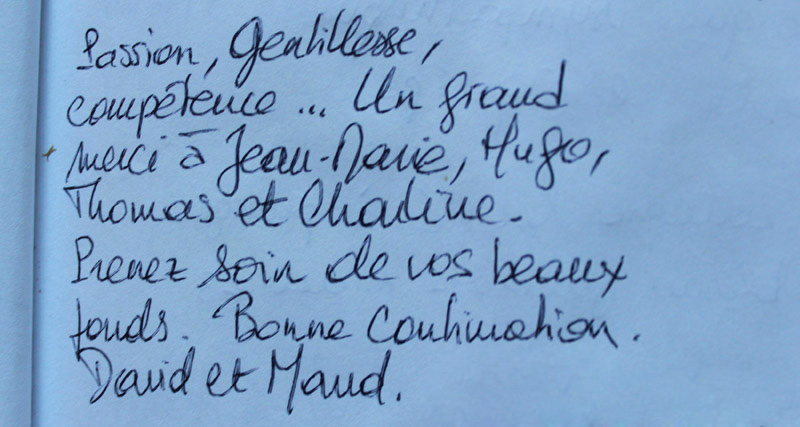 Passion, Gentillesse,
compétence... Un grand
merci à Jean-Marie, Hugo,
Thomas et Charline.
Prenez soin de vos beaux
fonds. Bonne Continuation.
David et Maud.